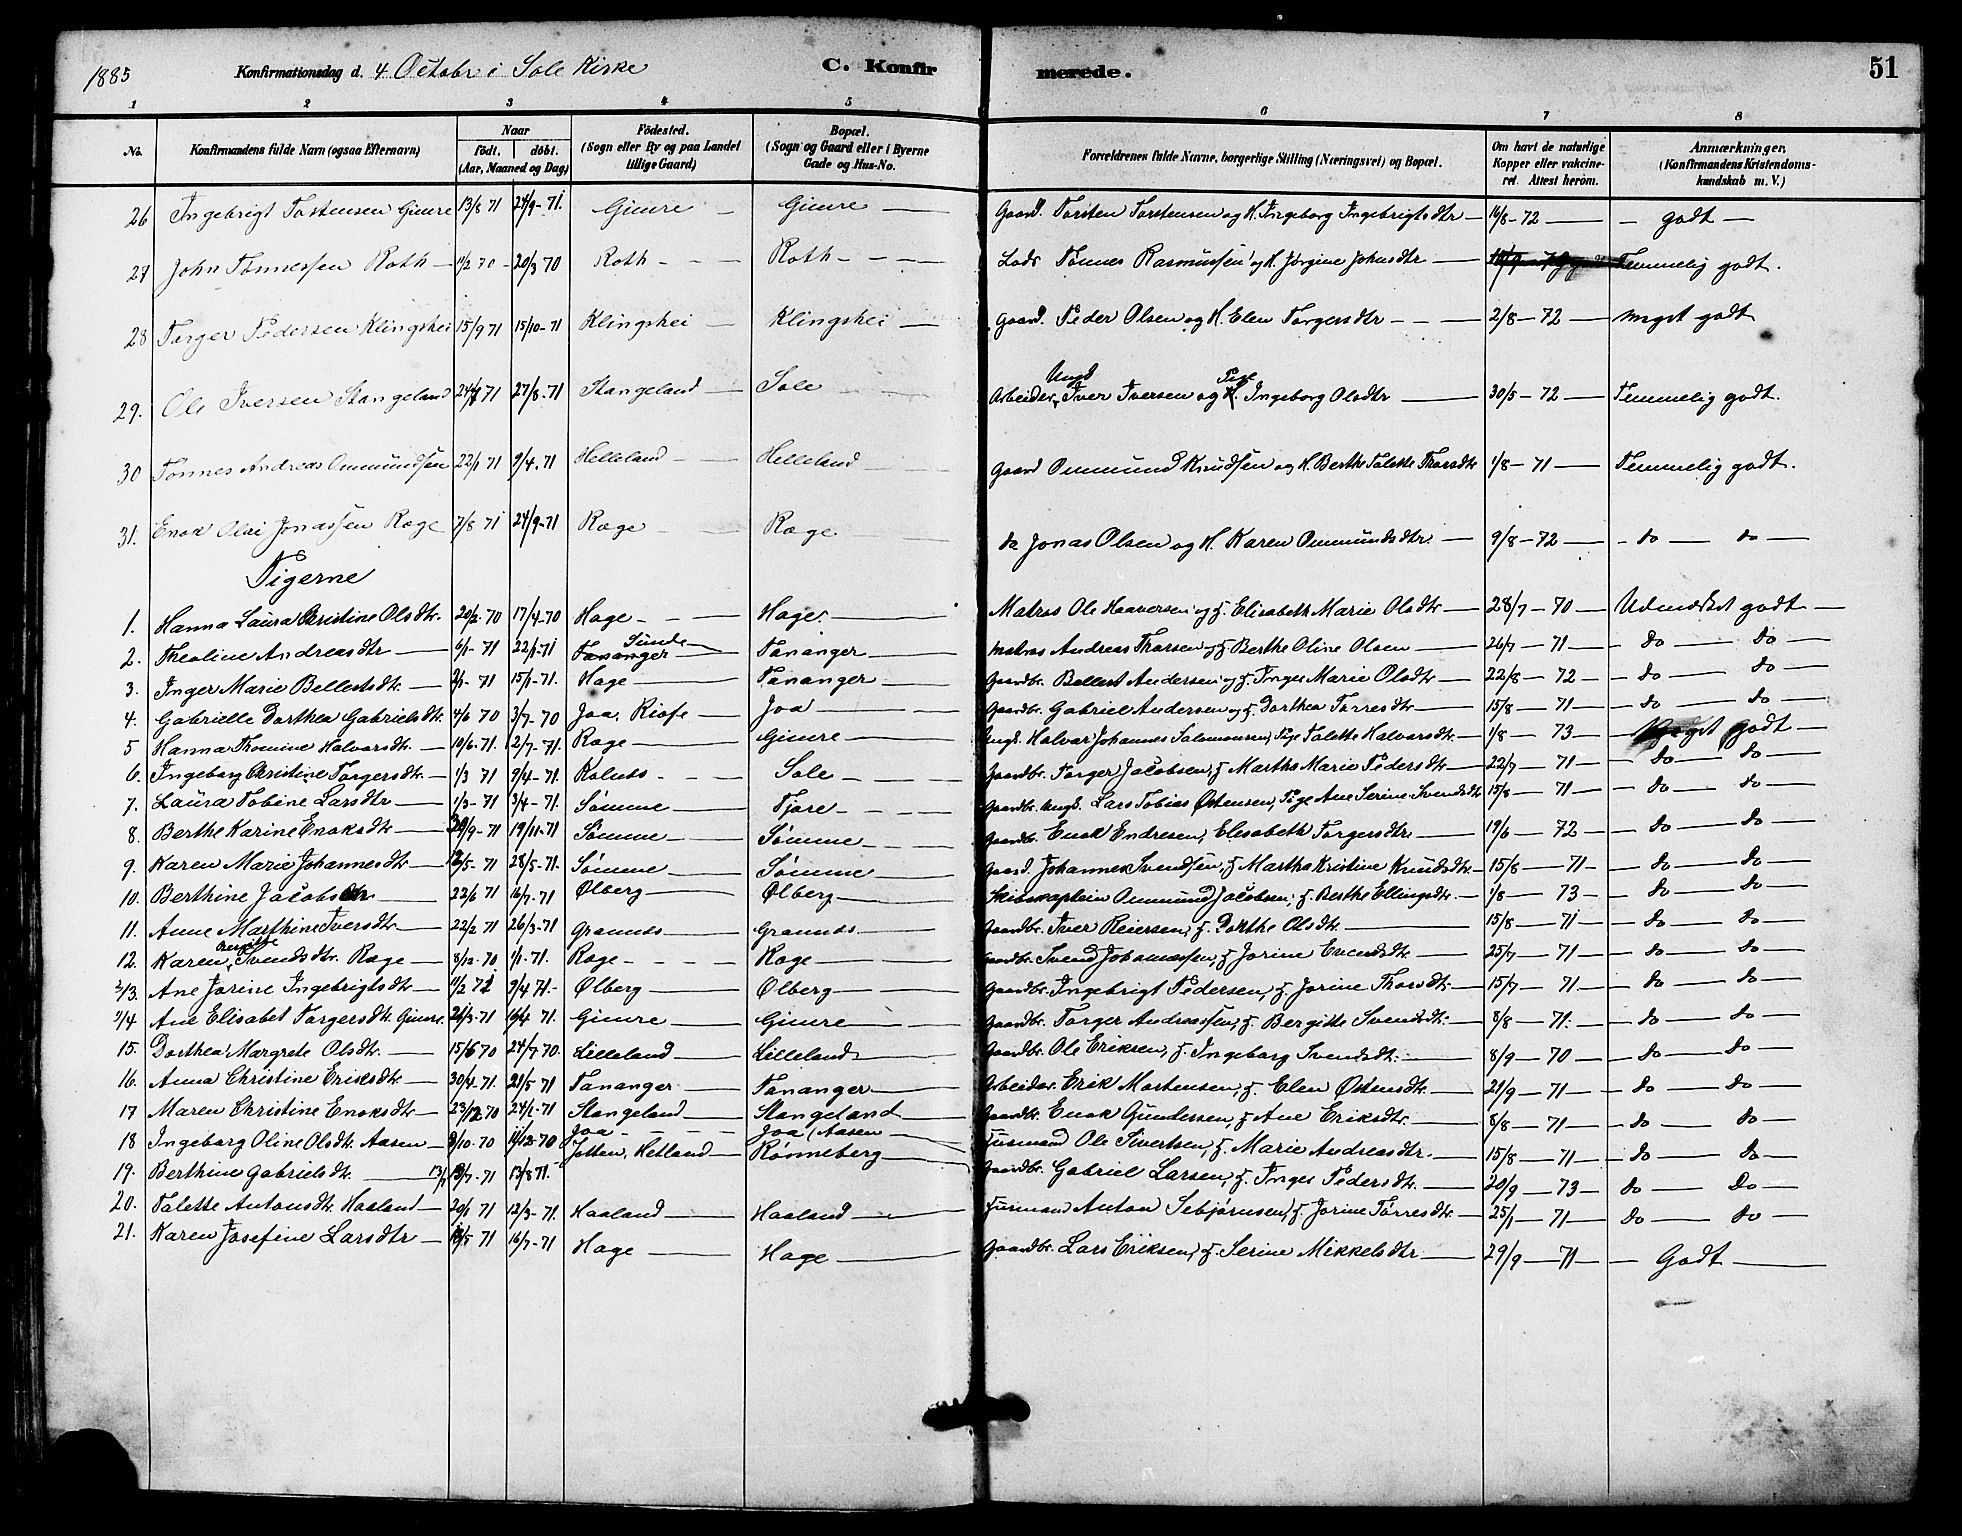 1885 Konfirmationsdag d. 4 Octobr i Sole Kirke C. Konfirmerede. 51
1 2 3 4 5 6 7 8
No. Konfirmandens fulde Navn (ogsaa Efternavn) Naar født. døbt. (Aar, Maaned og Dag) Födested. (Sogn eller By og paa Landet tillige Gaard) Bopæl. (Sogn og Gaard eller i Byerne Gade og Hus-No. Forældrenes fulde Navne, borgerlige Stilling (Næringsvei) og Bopæl. Om havt de naturlige Kopper eller vakcineret. Attest herom. Anmærkninger. (Konfirmandens Kristendomskundskab m. V.)
26 Ingebrigt Torstensen Gimre 13/8 71 24/9-71. Gimre Gimre Gaard. Torsten Torstensen og H. Ingeborg Ingebrigtsdtr 16/8-72 godt
27 John Tønnessen Roth 11/2 70 20/3 70 Roth Roth Lods Tønnes Rasmussen og H. Jørgine Johnsdtr Temmelig godt.
28 Torger Pedersen Klingshei 15/9 71 15/10-71 Klingshei Klingshei Gaard. Peder Olsen og H. Elen Torgersdtr 2/8-72 meget godt
29. Ole Iversen Stangeland 71 27/8-71 Stangeland Sole Arbeider, Ungk Iver Iversen og Pige Ingeborg Olsdtr 30/5-72 Temmelig godt.
30 Tønnes Andreas Ommundsen 22/1 71 9/4.71 Helleland Helleland Gaard Ommund Knudsen og H. Berthe Talette Thorsdtr 1/8-71 Temmelig godt.
31. Enok Olai Jonassen Rage 7/8 71 24/9-71 Rage Rage do Jonas Olsen og H. Karen Ommundsdtr. 9/8-72 do do
Pigerne
1. Hanna Laura Christine Olsdtr. 20/2-70 17/4-70 Hage Hage Matros Ole Haaversen og H. Elisabeth Marie Olsdtr 28/7-70 Udmærket godt
2. Theoline Andreasdtr 6/1-71 22/1-71 Tananger Sunde Tananger Matros Andreas Thorsen og H. Berthe Oline Olsen 26/7-71 do do
3. Inger Marie Bellestsdtr. 2/1-71 15/1-71. Hage Tananger Gaardbr. Bellest Andersen og H. Inger Marie Olsdtr 22/8-72 do do
4. Gabrielle Dorthea Gabrielsdtr. 4/6 70 3/7-70 Joa, Joa Gaardbr. Gabriel Andersen og H. Dorthea Tørresdtr 15/8-71 do do
5 Hanna Thomine Halvarsdtr. 10/6-71. 2/7-71. Rage Gimre Ungk. Halvar Johannes Salomonsen, Pige Talette Halvarsdtr. 1/8-73 Meget godt
6. Ingeborg Christine Torgersdtr. 1/3 71 9/4-71. Sole Gaardbr. Torger Jacobsen, H. Martha Marie Pedersdtr. 22/7-71 do do
7. Laura Tobine Larsdtr 1/3-71 3/4-71. Sømme Tjore Gaardbr. Ungk. Lars Tobias Østensen, Pige Ane Serine Svendsdtr 15/8-71 do do
8. Berthe Karine Enoksdtr /9-71 19/11-71 Sømme Sømme Gaardbr. Enok Endresen, Elisabeth Torgersdtr. 19/6 72 do do
9. Karen Marie Johannesdtr 12/5-71 28/5-71. Sømme Sømme Gaard. Johannes Svendsen, H. Martha Kristine Knudsdtr. 15/8-71 do do
10. Berthine Jacobsdtr 22/6 71 16/7-71 Ølberg Ølberg Skibskaptein Ommund Jacobsen, H. Berthe Ellingsdtr. 1/8-73 do do
11. Anne Marthine Iversdtr 22/2 71 26/3-71 Grannes Grannes Gaardbr. Iver Reiersen, H. Dorthe Olsdtr. 15/8-71 do do
12. Karen Svendsdtr. Rage 8/12-70 1/1-71. Rage Rage Gaardbr. Svend Johannessen, H. Jorine Evendsdtr. 25/7-71 do do
13. Ane Jorine Ingebrigtsdtr. 11/2 71 9/4 71.- Ølberg Ølberg Gaardbr. Ingebrigt Pedersen, H. Jorine Thorsdtr. 15/7-71 do do
14 Ane Elisabet Torgersdtr. Gimre 21/3-71 16/4 71. Gimre Gimre Gaardbr. Torger Andreassen, H. Bergitte Svendsdtr. 8/8-71. do do
15. Dorthea Margrete Olsdtr. 15/6 70 24/7-70. Lilleland Lilleland Gaardbr. Ole Eriksen, H. Ingeborg Svendsdtr. 8/9-70 do do
16. Anna Christine Eriksdtr. 30/4.71. 21/5 71 Tananger Tananger Arbeider Erik Mortensen, H. Elen Østensdtr. 21/9-71 do do
17 Maren Christine Enoksdtr 23/12 70 24/1-71 Stangeland Stangeland Gaardbr. Enok Gundersen, H. Ane Eriksdtr. 8/8-71 do do
18 Ingeborg Oline Olsdtr. Aasen /10-70 11/12-70 Joa Joa (Aasen Husmand Ole Sivertsen, H. Marie Andreasdtr. 15/8-71 do do
19. Berthine Gabrielsdtr. 13/7 /7-71 13/8 71. Jotten, Hetland Rønneberg Gaardbr. Gabriel Larsen, H. Inger Pedersdtr. 20/9-73 do Do
20. Talette Antonsdtr. Haaland 29/1 71 12/3-71. Haaland Haaland Husmand Anton Sebjørnsen, H. Jorine Tørresdtr. 25/1-71 do do
21. Karen Josefine Larsdtr /5 71 16/7-71 Hage Hage Gaardbr. Lars Eriksen, H. Serine Mikkelsdtr 29/9-71 Godt